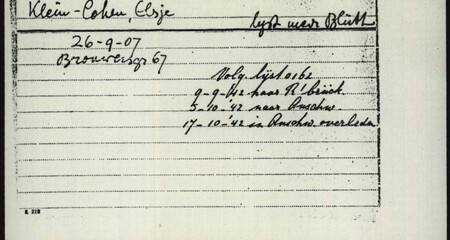 Klein-Cohen, Elsje
lijst mevr Blütt
26-9-07
Brouwersgr 67
Volg. lijst 0162
9-9-'42 naar R'brück
5-10-'42 naar Auschw.
17-10-'42 in Auschw. overleden